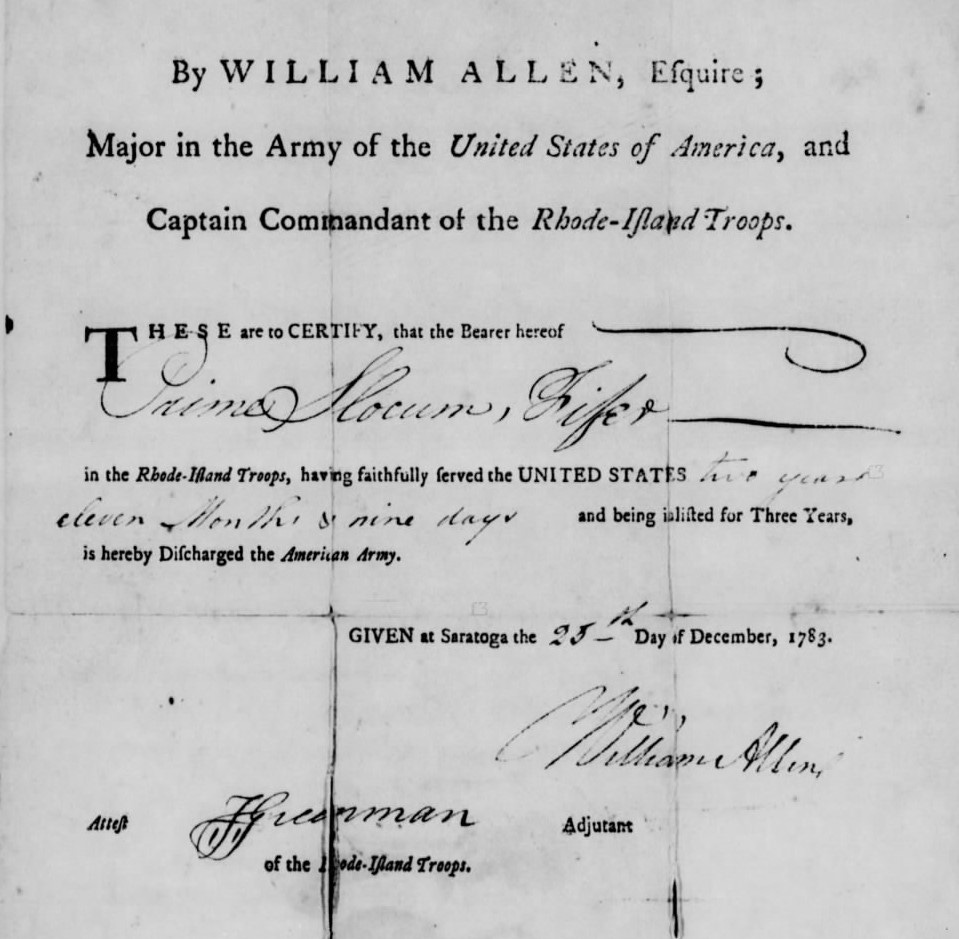 By WILLIAM ALLEN, Eſquire;
Major in the Army of the United States of America, and
Captain Commandant of the Rhode-Iſland Troops.
THESE are to CERTIFY, that the Bearer hereof
Prime Slocum, Fifer
in the Rhode-Iſland Troops, having faithfully ſerved the UNITED STATES two years
eleven Months & nine days and being inliſted for Three Years,
is hereby Diſcharged the American Army.
GIVEN at Saratoga the 25th Day of December, 1783.
William Allen
Atteſt JGreenman Adjutant
of the Rhode-Iſland Troops.